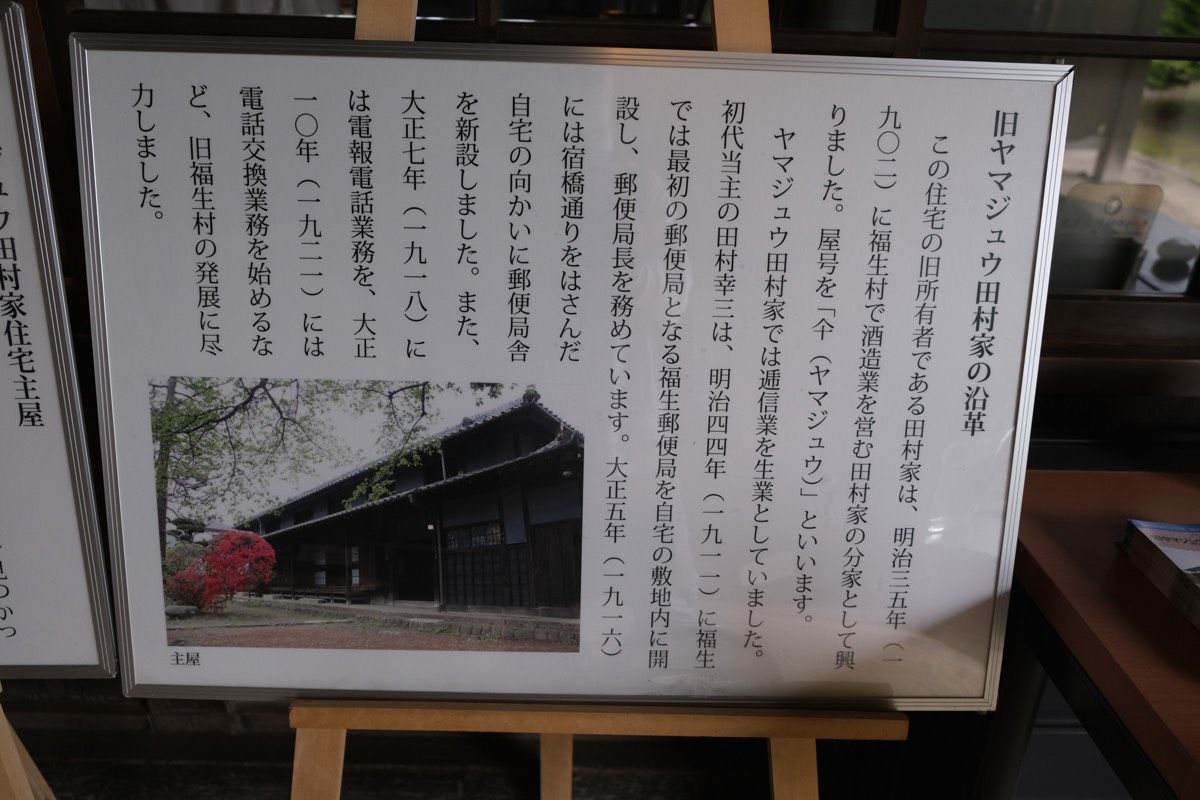 旧ヤマジュウ田村家の沿革
この住宅の旧所有者である田村家は、明治三五年（一
九〇二）に福生村で酒造業を営む田村家の分家として興
りました。屋号を「仐（ヤマジュウ）」といいます。
ヤマジュウ田村家では逓信業を生業としていました。
初代当主の田村幸三は、明治四四年（一九一一）に福生
では最初の郵便局となる福生郵便局を自宅の敷地内に開
設し、郵便局長を務めています。大正五年（一九一六）
には宿橋通りをはさんだ
自宅の向かいに郵便局舎
を新設しました。また、
大正七年（一九一八）に
は電報電話業務を、大正
一〇年（一九二一）には
電話交換業務を始めるな
ど、旧福生村の発展に尽
力しました。
主屋
ュウ田村家住宅主屋